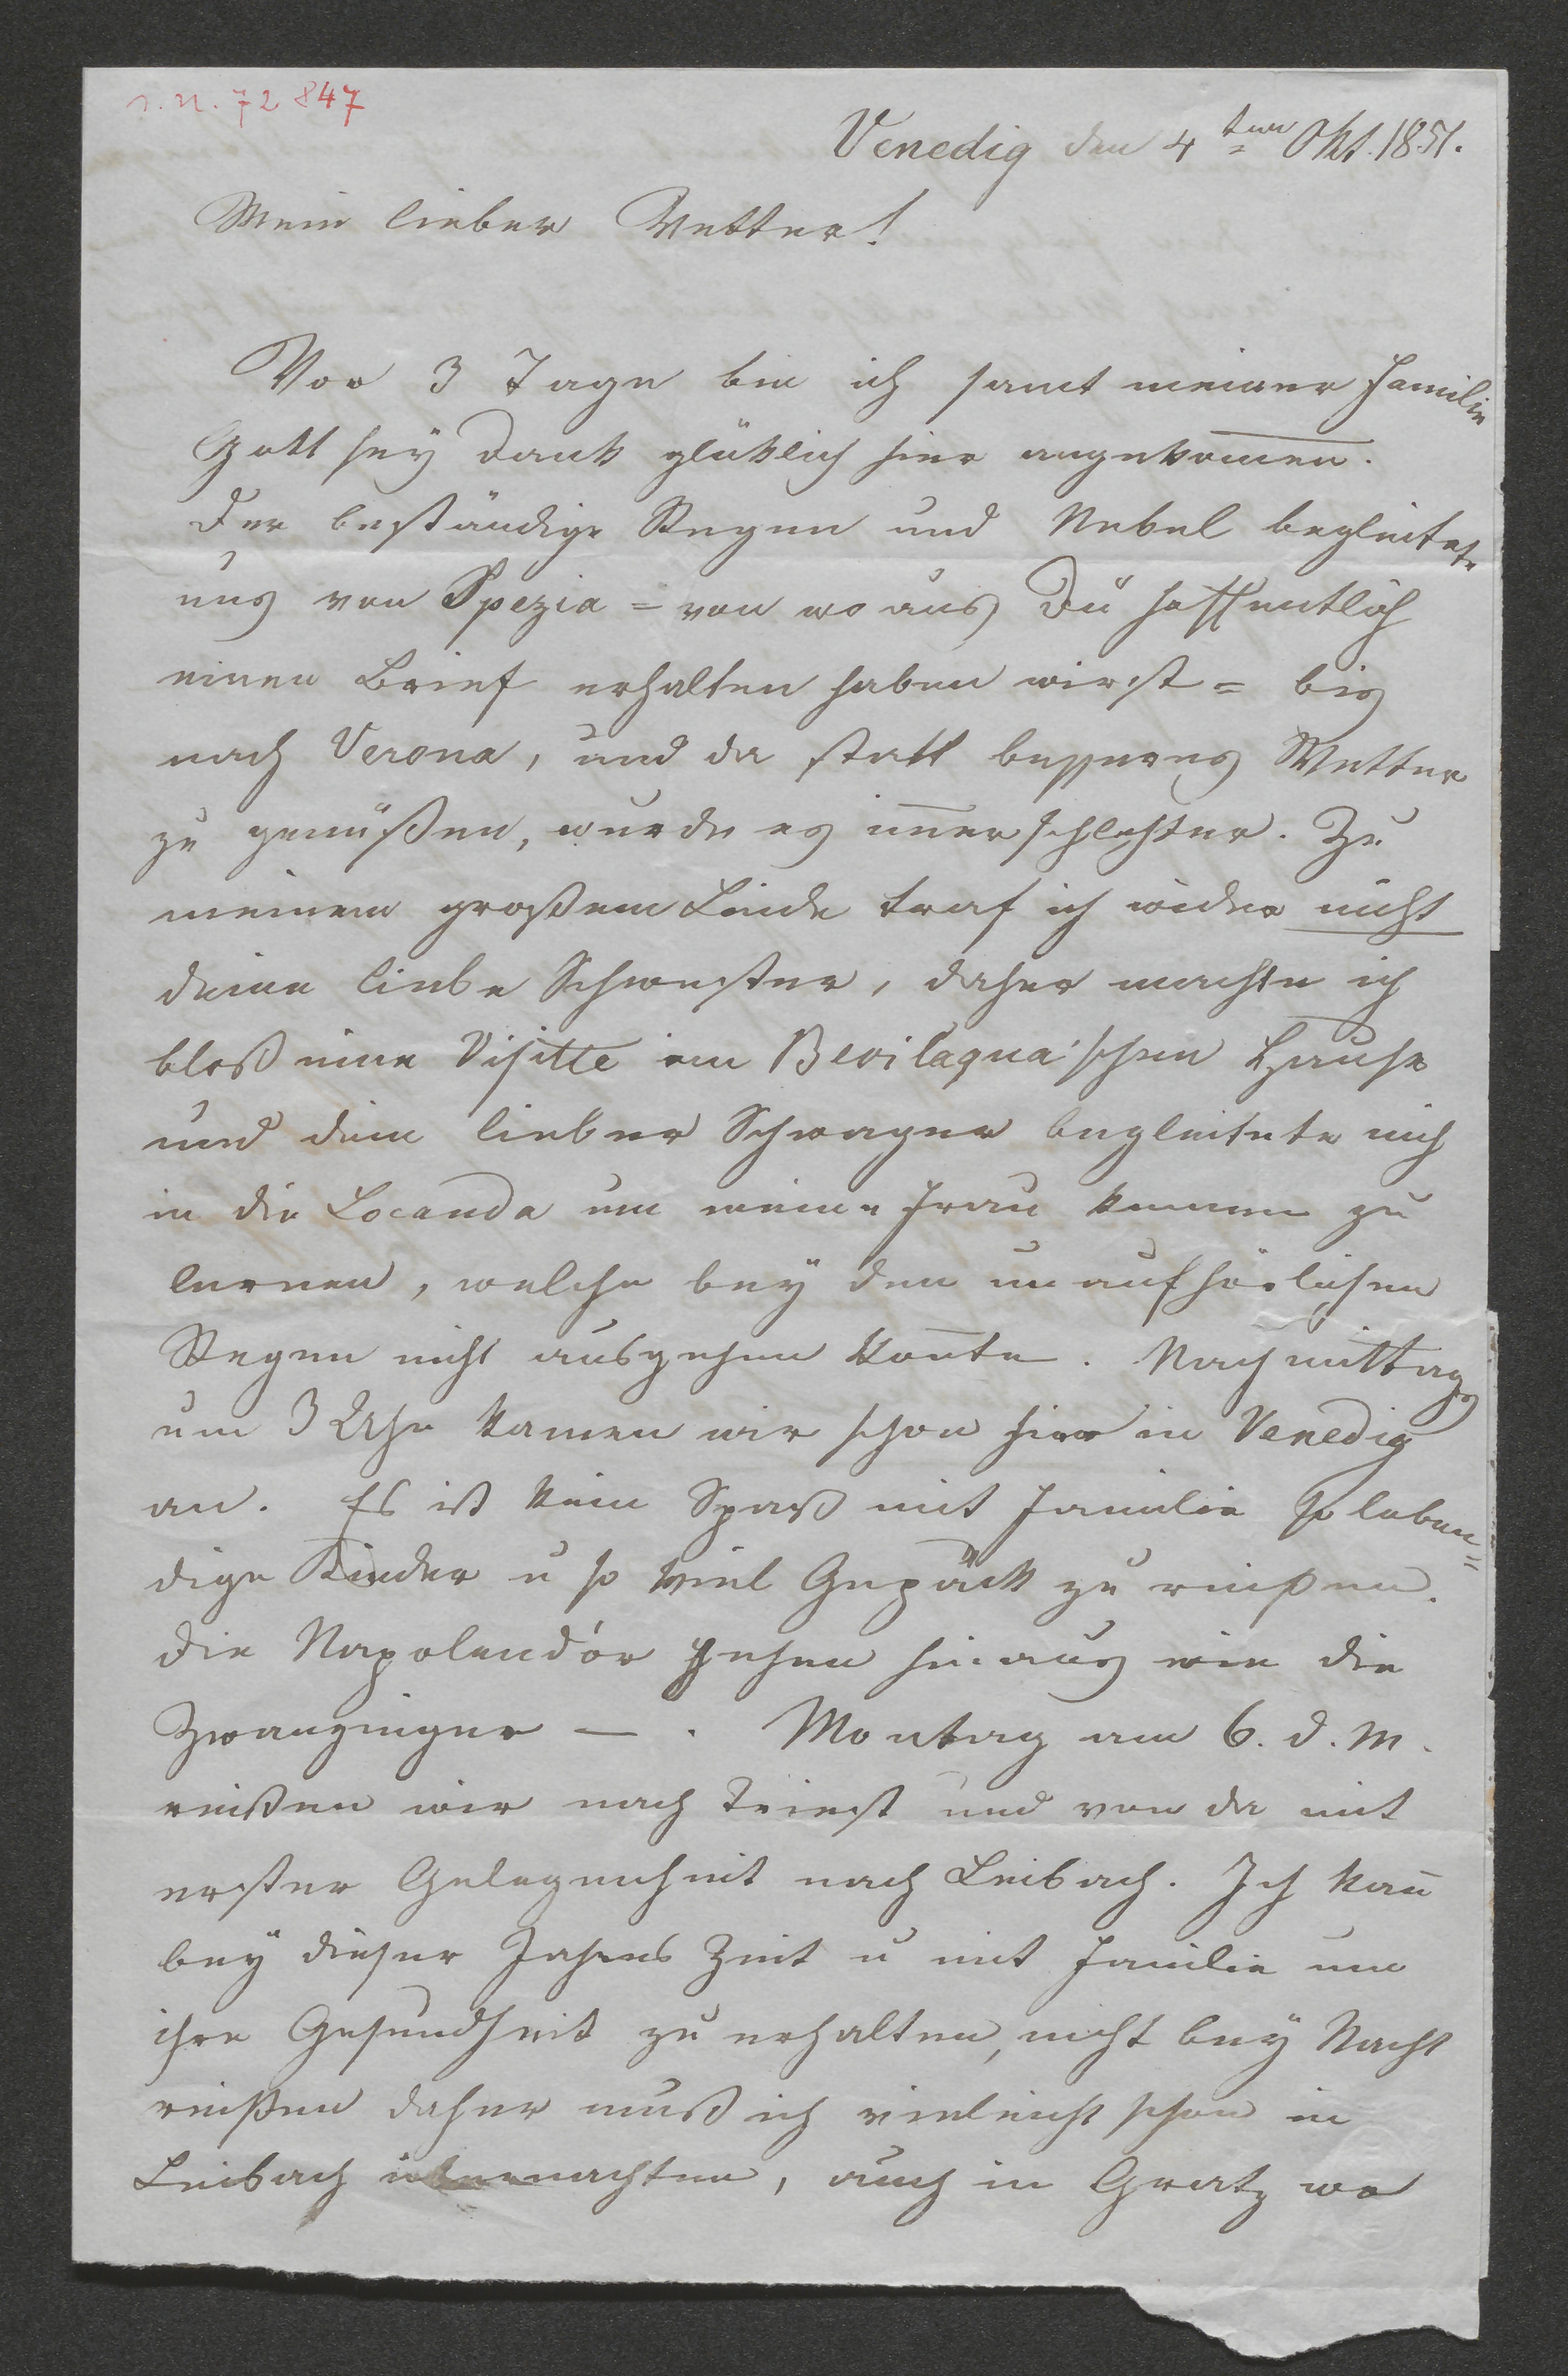 I.N. 72847
Venedig den 4ten Okt. 1851.
Mein lieber Vetter!
Vor 3 Tage bin ich samt meiner Familie
Gott sey Dank glüklich hier angekom̅en.
Der beständige Regen und Nebel begleitete
uns von Spezia = von wo aus Du hoffentlich
einen Brief erhalten haben wirst = bis
nach Verona, und da statt besseres Wetter
zu genüßen, wurde es im̅er schlechter. Zu
meinem großem Leide traf ich wider nicht
deine liebe Schwester, daher machte ich
bloß eine Visitte im Bevilaqua'schen Hause
und dein lieber Schwager begleitete mich
in die Locanda um meine Frau kennen zu
lernen, welche bey den unaufhörlichen
Regen nicht ausgehen kon̅te. Nachmittags
um 3 Uhr kamen wir schon hier in Venedig
an. Es ist kein Spaß mit Familie so leben=
dige Kinder u so viel Gepäck zu reißen.
Die Napolend'or gehen hinaus wie die
Zwanzinger — . Montag am 6. d. M.
reißen wir nach Triest und von da mit
erster Gelegenheit nach Leibach. Ich kan̅
bey dieser Jahres Zeit u mit Familie um
ihre Gesundheit zu erhalten, nicht bey Nacht
reißen daher muß ich vieleicht schon in
Leibach übernachten, auch in Gratz wo